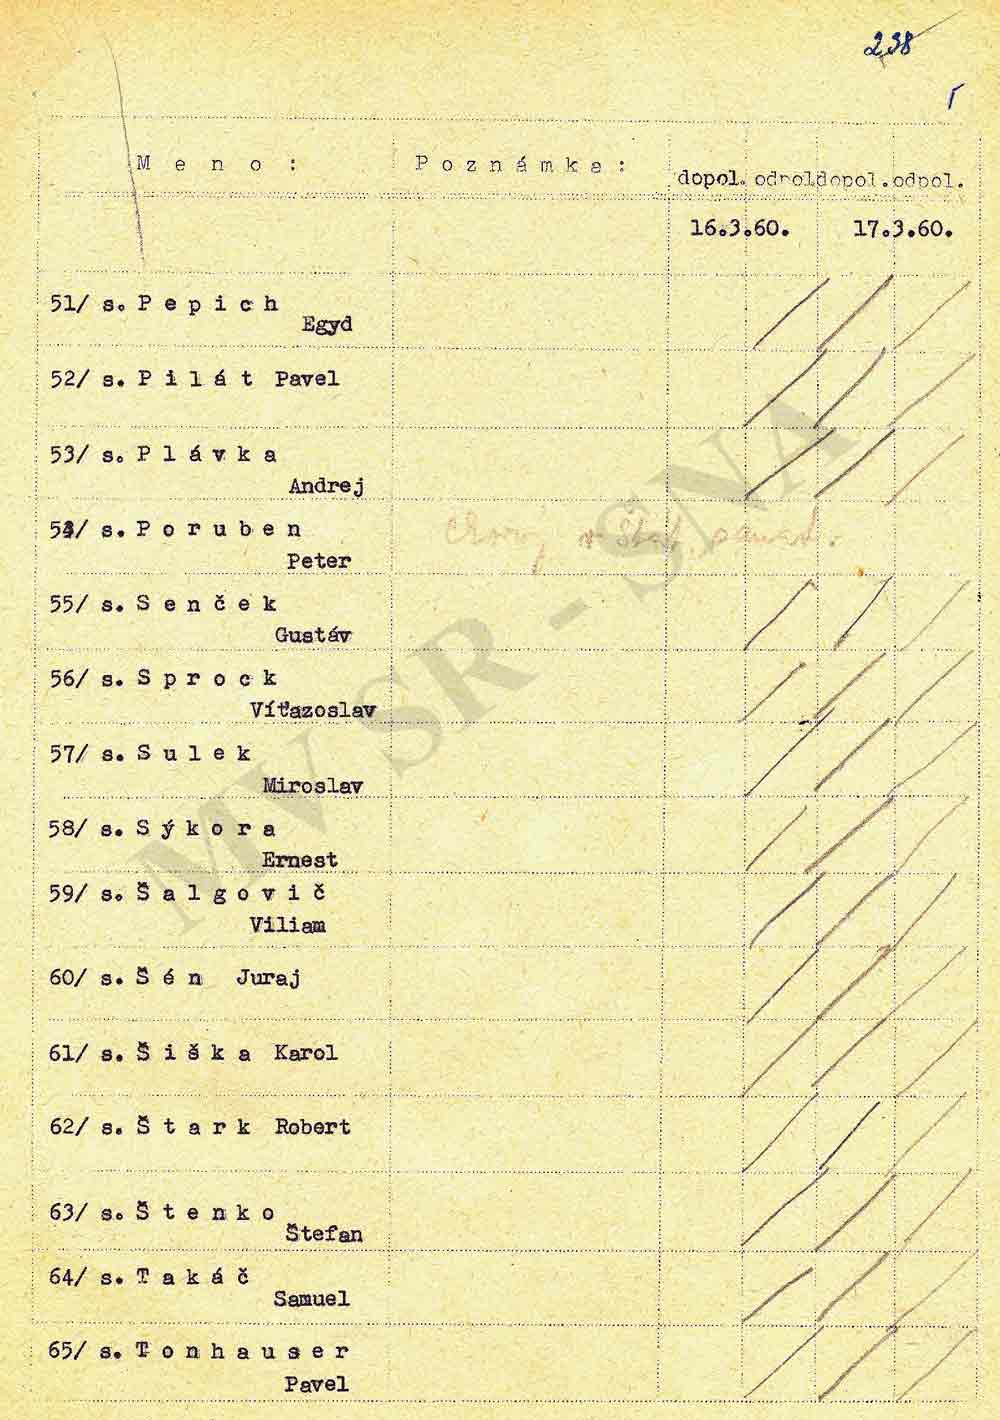 238
M e n o :   P o z n á m k a :
dopol. odpol dopol. odpol.
16.3.60.   17.3.60.
51/ s. P e p i c h
Egyd
52/ s. P i l á t Pavel
53/ s. P l á v k a
Andrej
54/ s. P o r u b e n
Peter
55/ s. S e n č e k
Gustáv
56/ s. S p r o c k
Víťazoslav
57/ s. S u l e k
Miroslav
58/ s. S ý k o r a
Ernest
59/ s. Š a l g o v i č
Viliam
60/ s. Š é n Juraj
61/ s. Š i š k a Karol
62/ s. Š t a r k Robert
63/ s. Š t e n k o
Štefan
64/ s. T a k á č
Samuel
65/ s. T o n h a u s e r
Pavel
MV SR - SNA